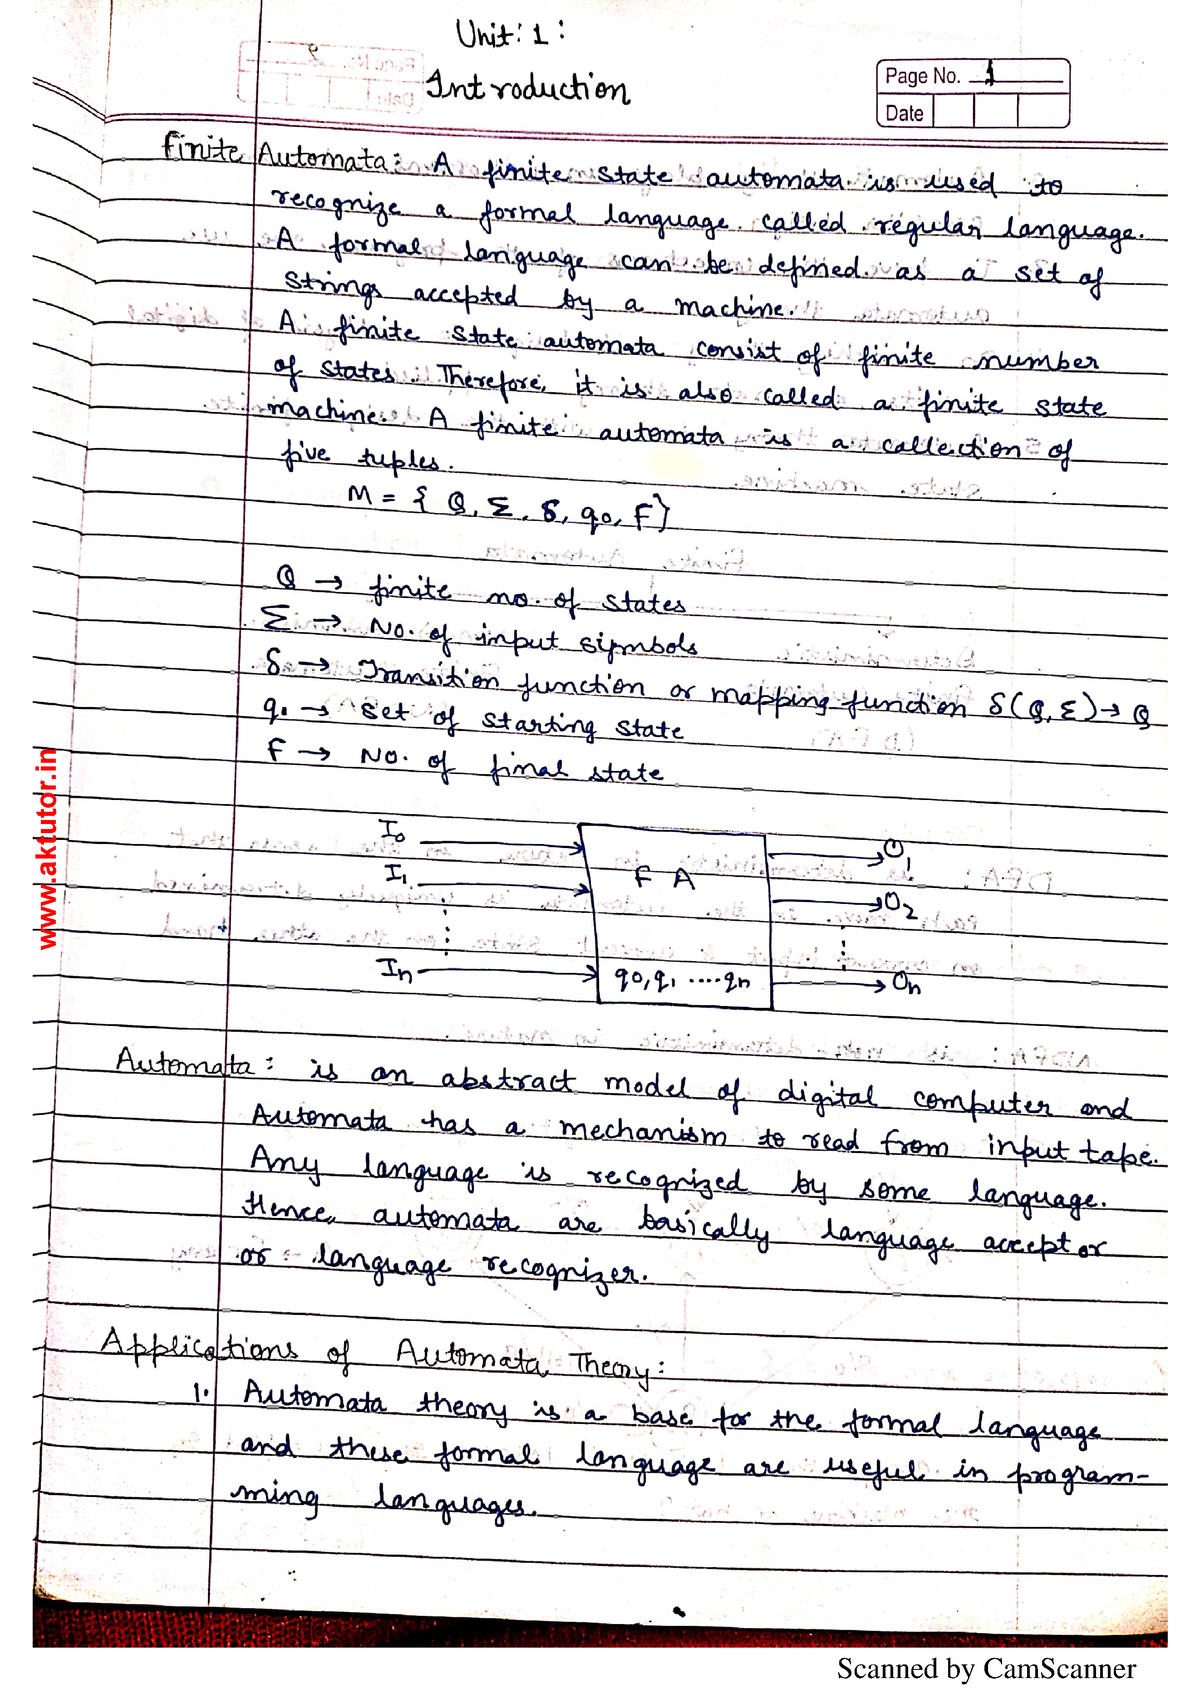 Unit: 1:
Introduction
Page No. 1
Date
Finite Automata: A finite state automata is used to
recognize a formal language called regular language.
A formal language can be defined as a set of
strings accepted by a machine.
A finite state automata consist of finite number
of states. Therefore, it is also called a finite state
machine. A finite automata is a collection of
five tuples.
M = { Q, Σ, δ, q0, F}
Q → finite no. of states
Σ → No. of input symbols
δ → Transition function or mapping function δ(Q, Σ) → Q
q0 → set of starting state
F → No. of final state
I0
I1
In
F A
q0, q1 ....qn
O1
O2
On
Automata: is an abstract model of digital computer and
Automata has a mechanism to read from input tape.
Any language is recognized by some language.
Hence, automata are basically language acceptor
or language recognizer.
Applications of Automata Theory:
1. Automata theory is a base for the formal language
and these formal language are useful in program-
ming languages.
www.aktutor.in
Scanned by CamScanner